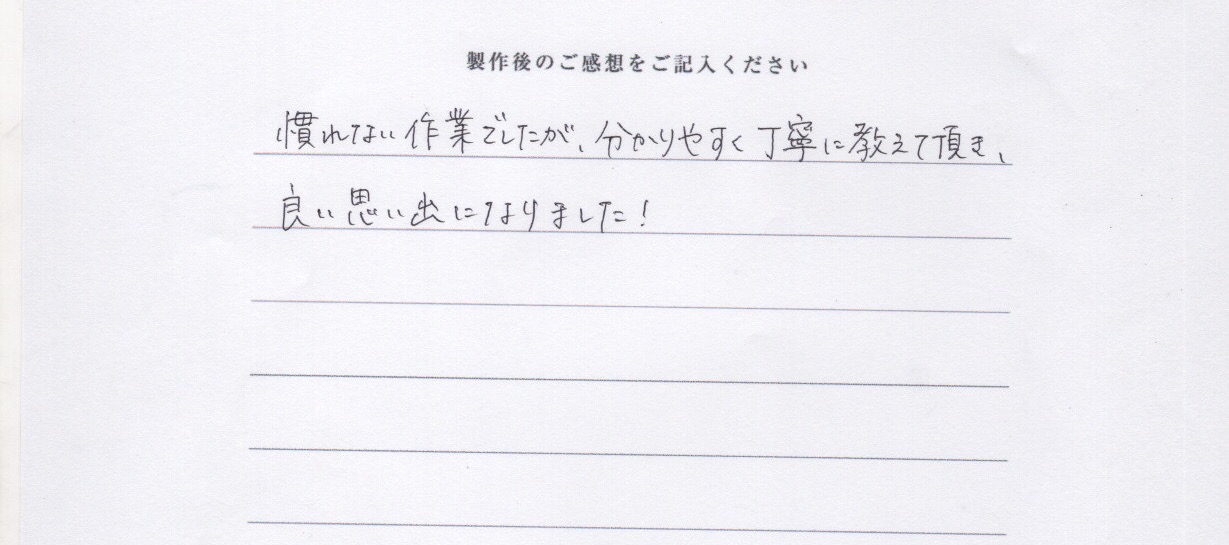 製作後のご感想をご記入ください
慣れない作業でしたが、分かりやすく丁寧に教えて頂き、
良い思い出になりました!